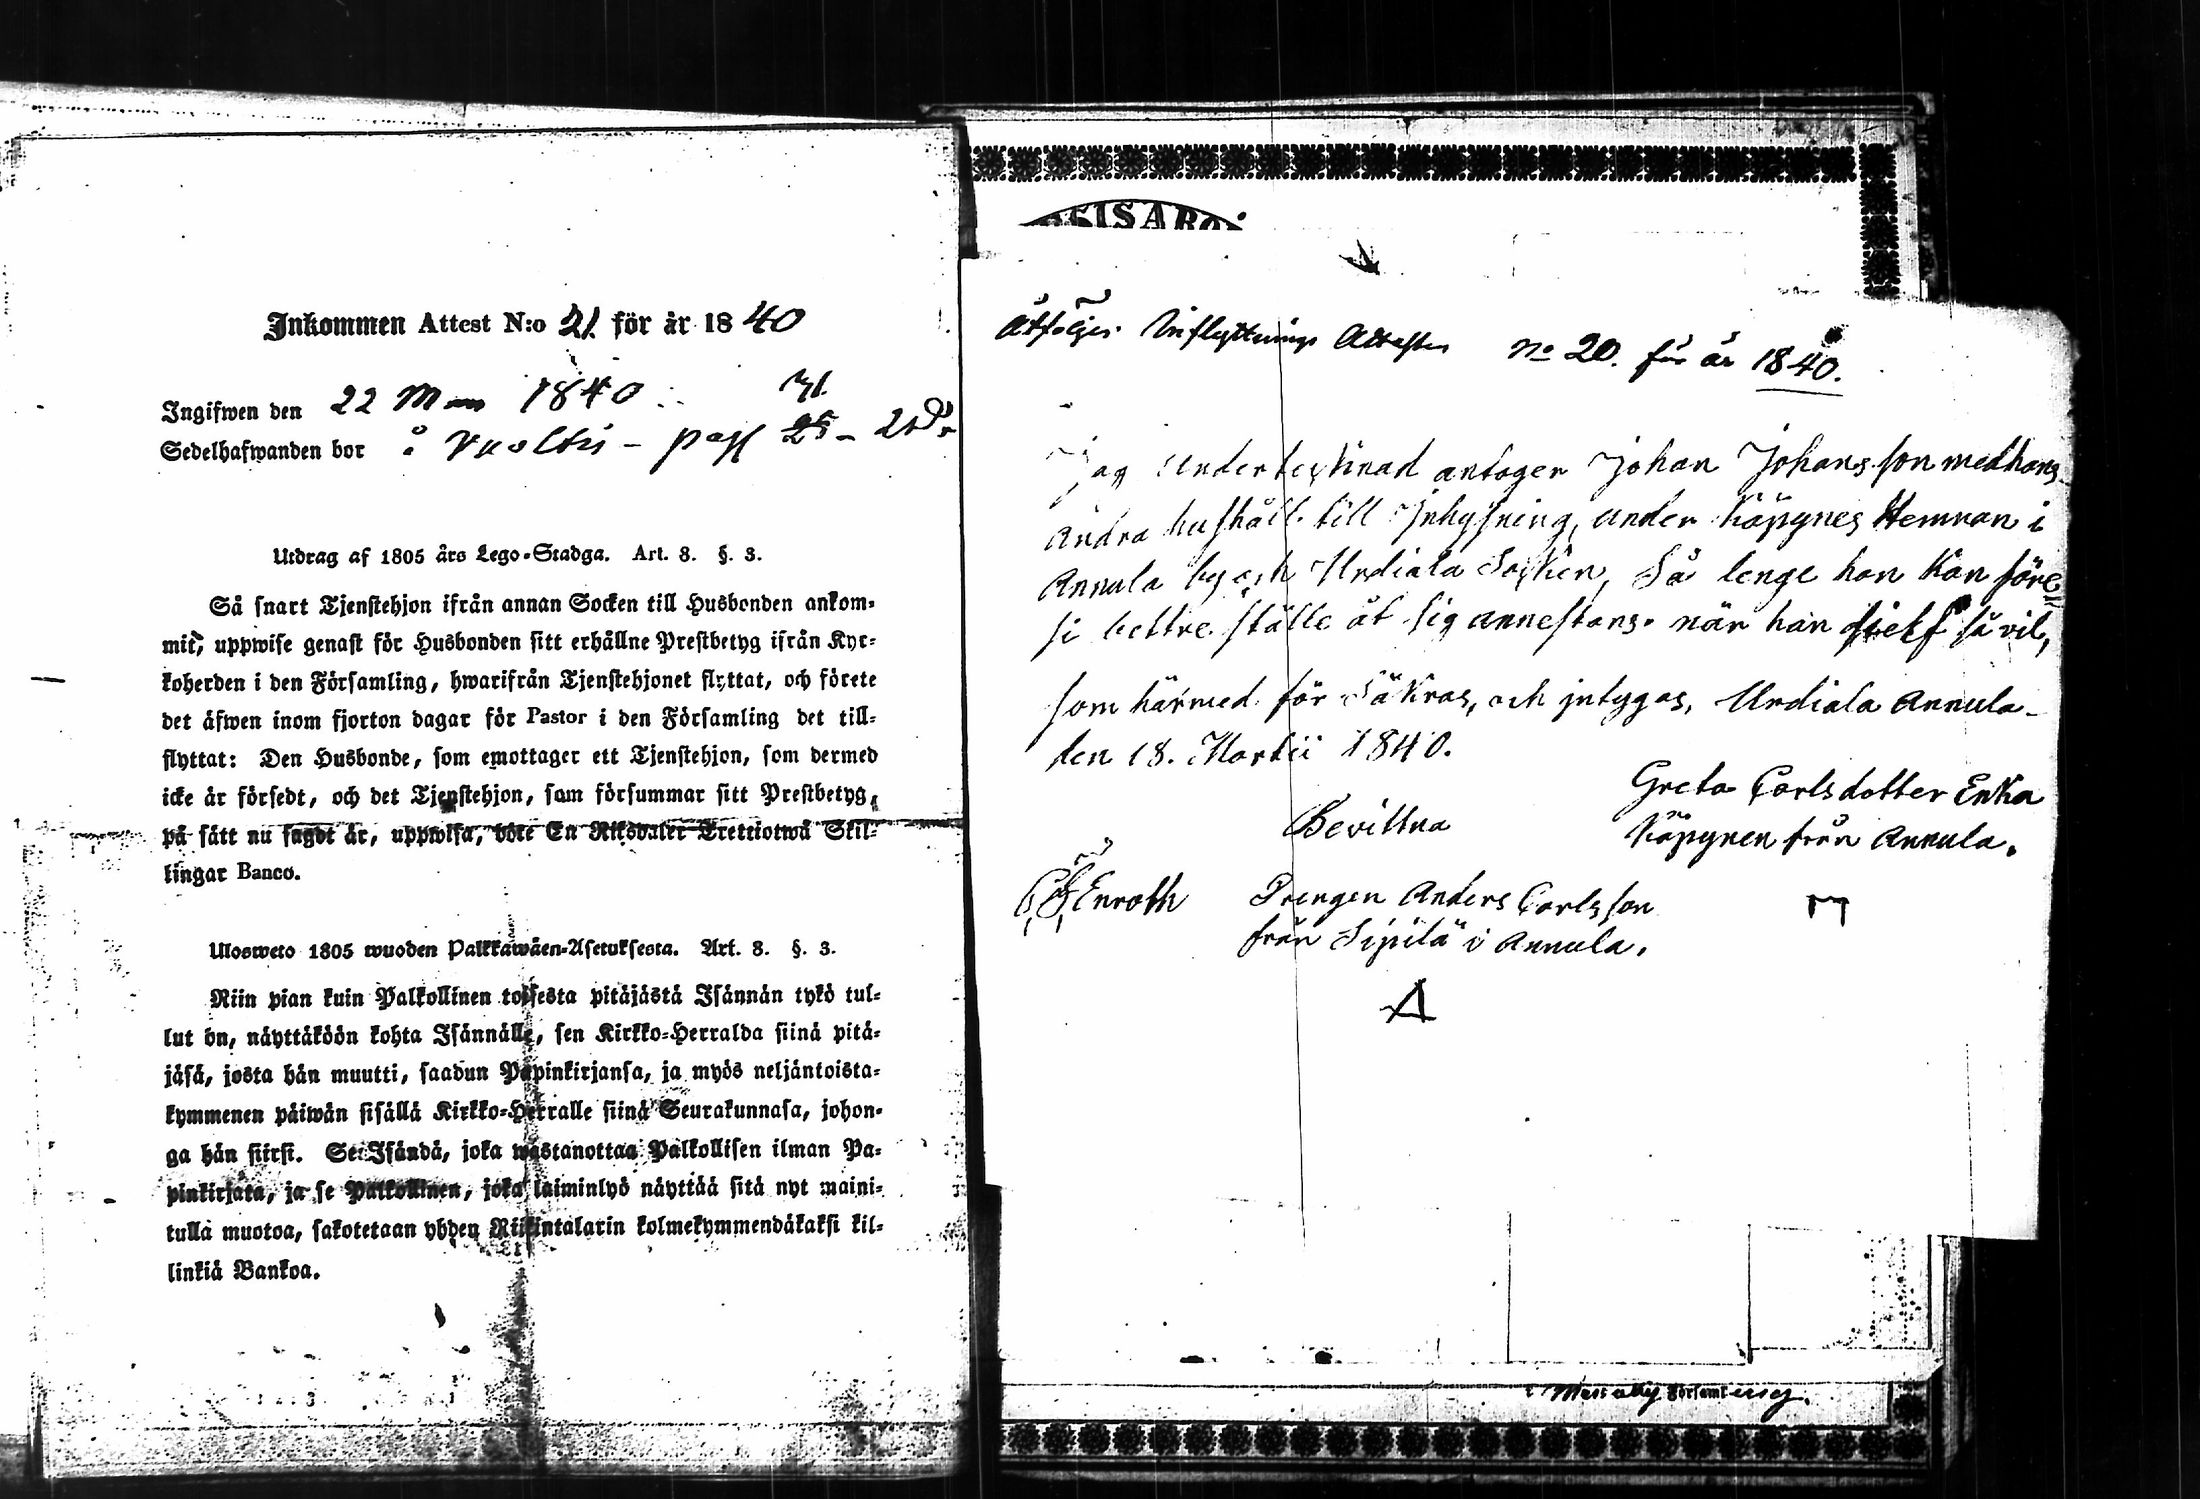 Inkommen Attest N:o 21. för år 1840
Ingifwen den 22 M 1840
Sedelhafwanden bor i
Utdrag af 1805 års Lego-Stadga. Art. 8. §. 3.
Så snart Tjenstehjon ifrån annan Socken till Husbonden ankom-
mit, uppwise genast för Husbonden sitt erhållne Prestbetyg ifrån Kyr-
koherden i den Församling, hwarifrån Tjenstehjonet flyttat, och förete
det äfwen inom fjorton dagar för Pastor i den Församling det till-
flyttat: Den Husbonde, som emottager ett Tjenstehjon, som dermed
icke är försedt, och det Tjenstehjon, som försummar sitt Prestbetyg,
på sätt nu sagdt är, uppwisa, böte En Riksdaler Trettiotwå Skil-
lingar Banco.
Ulosweto 1805 wuoden Palkkawäen-Asetuksesta. Art. 8. §. 3.
Niin pian kuin Palkollinen toisesta pitäjästä Isännän tykö tul-
lut on, näyttäköön kohta Isännälle, sen Kirkko-Herralda siinä pitä-
jäsä, josta hän muutti, saadun Papinkirjansa, ja myös neljäntoista-
kymmenen päiwän sisällä Kirkko-Herralle siinä Seurakunnasa, johon-
ga hän siirsi. Se Isändä, joka wastanottaa Palkollisen ilman Pa-
pinkirjata, ja se Palkollinen, joka laiminlyö näyttää sitä nyt maini-
tulla muotoa, sakotetaan yhden Riikintalarin kolmekymmendäkaksi kil-
linkiä Bankoa.
Åtföljer Inflyttnings Attesten No 20. för år 1840.
Jag undertecknad antager Johan Johansson med hans
andra hushåll till Inhysning, under Käpynes Hemman i
Annula by och Urdiala Socken, Så lenge han kan före
si bettre ställe åt sig annestans. när han sielf så vil,
som härmed för Säkras, och intygas, Urdiala Annula
den 18. Martii 1840.
Greta Carlsdotter Enka
Käpynen från Annula.
Bevittna
Enroth
Drengen Anders Carlsson
från Sipilä i Annula.
A
Församling.